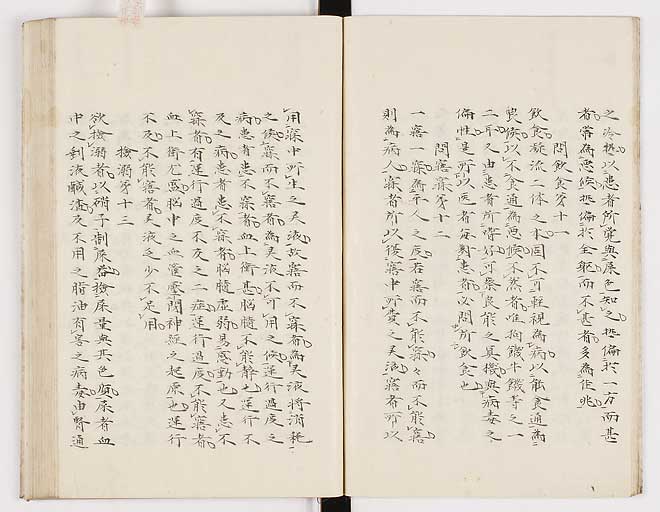 之冷熱以患者所覚與尿色知之熱偏於一方而甚
者常為悪候熱偏於全躯而不甚者多為佳兆
問飲食第十一
飲食凝流二体之本固不可軽視為病以飲食通為
良候以不食通為悪候不然者唯拘饑十饑等之一
二耳又由患者所嗜好可察良能之真機與病毒之
偏性是所以医者毎対患者必問所飲食也
問寤寐第十二
一寤一寐為平人之度若寤而不能寐々而不能寤
則為病人寐者所以復寤中所費之灵液寤者所以
用寐中所生之灵液故寤而不寐者為灵液将消耗
之候寐而不寤者為灵液不可用之候運行過度之
病患者患不寐者血上衝甚脳髄不能静也運行不
及之病患者患不寐者脳髄虚弱易感動也又患不
寐者有運行過度不及之二症運行過度不能寤者
血上衝尤悪脳中之血管壓閉神経之起原也運行
不及不能寤者灵液之少不足用
検溺第十三
欲検溺者以硝子制尿器検尿量與其色質尿者血
中之剰液鹹渣及不用之脂油有害之病毒由腎通